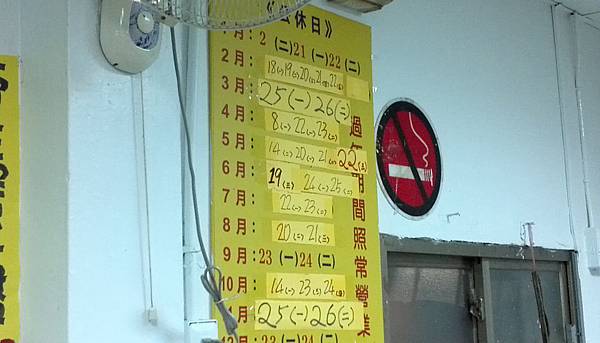 《公休日》
月：2 (二)21 (一)22 (二)
2月：18 19 20 21 22
3月：25(一)26(二)
4月：8(一)22(一)23(二)
5月：14(二)20(一)21(二)22(三)
6月：19(三)24(一)25(二)
7月：22(一)23(二)
8月：20(二)21(三)
9月：23 (一)24 (二)
10月：14(一)23 24
月：25(一)26(二)
12月：23 (一)24 (二)
過年期間照常營業